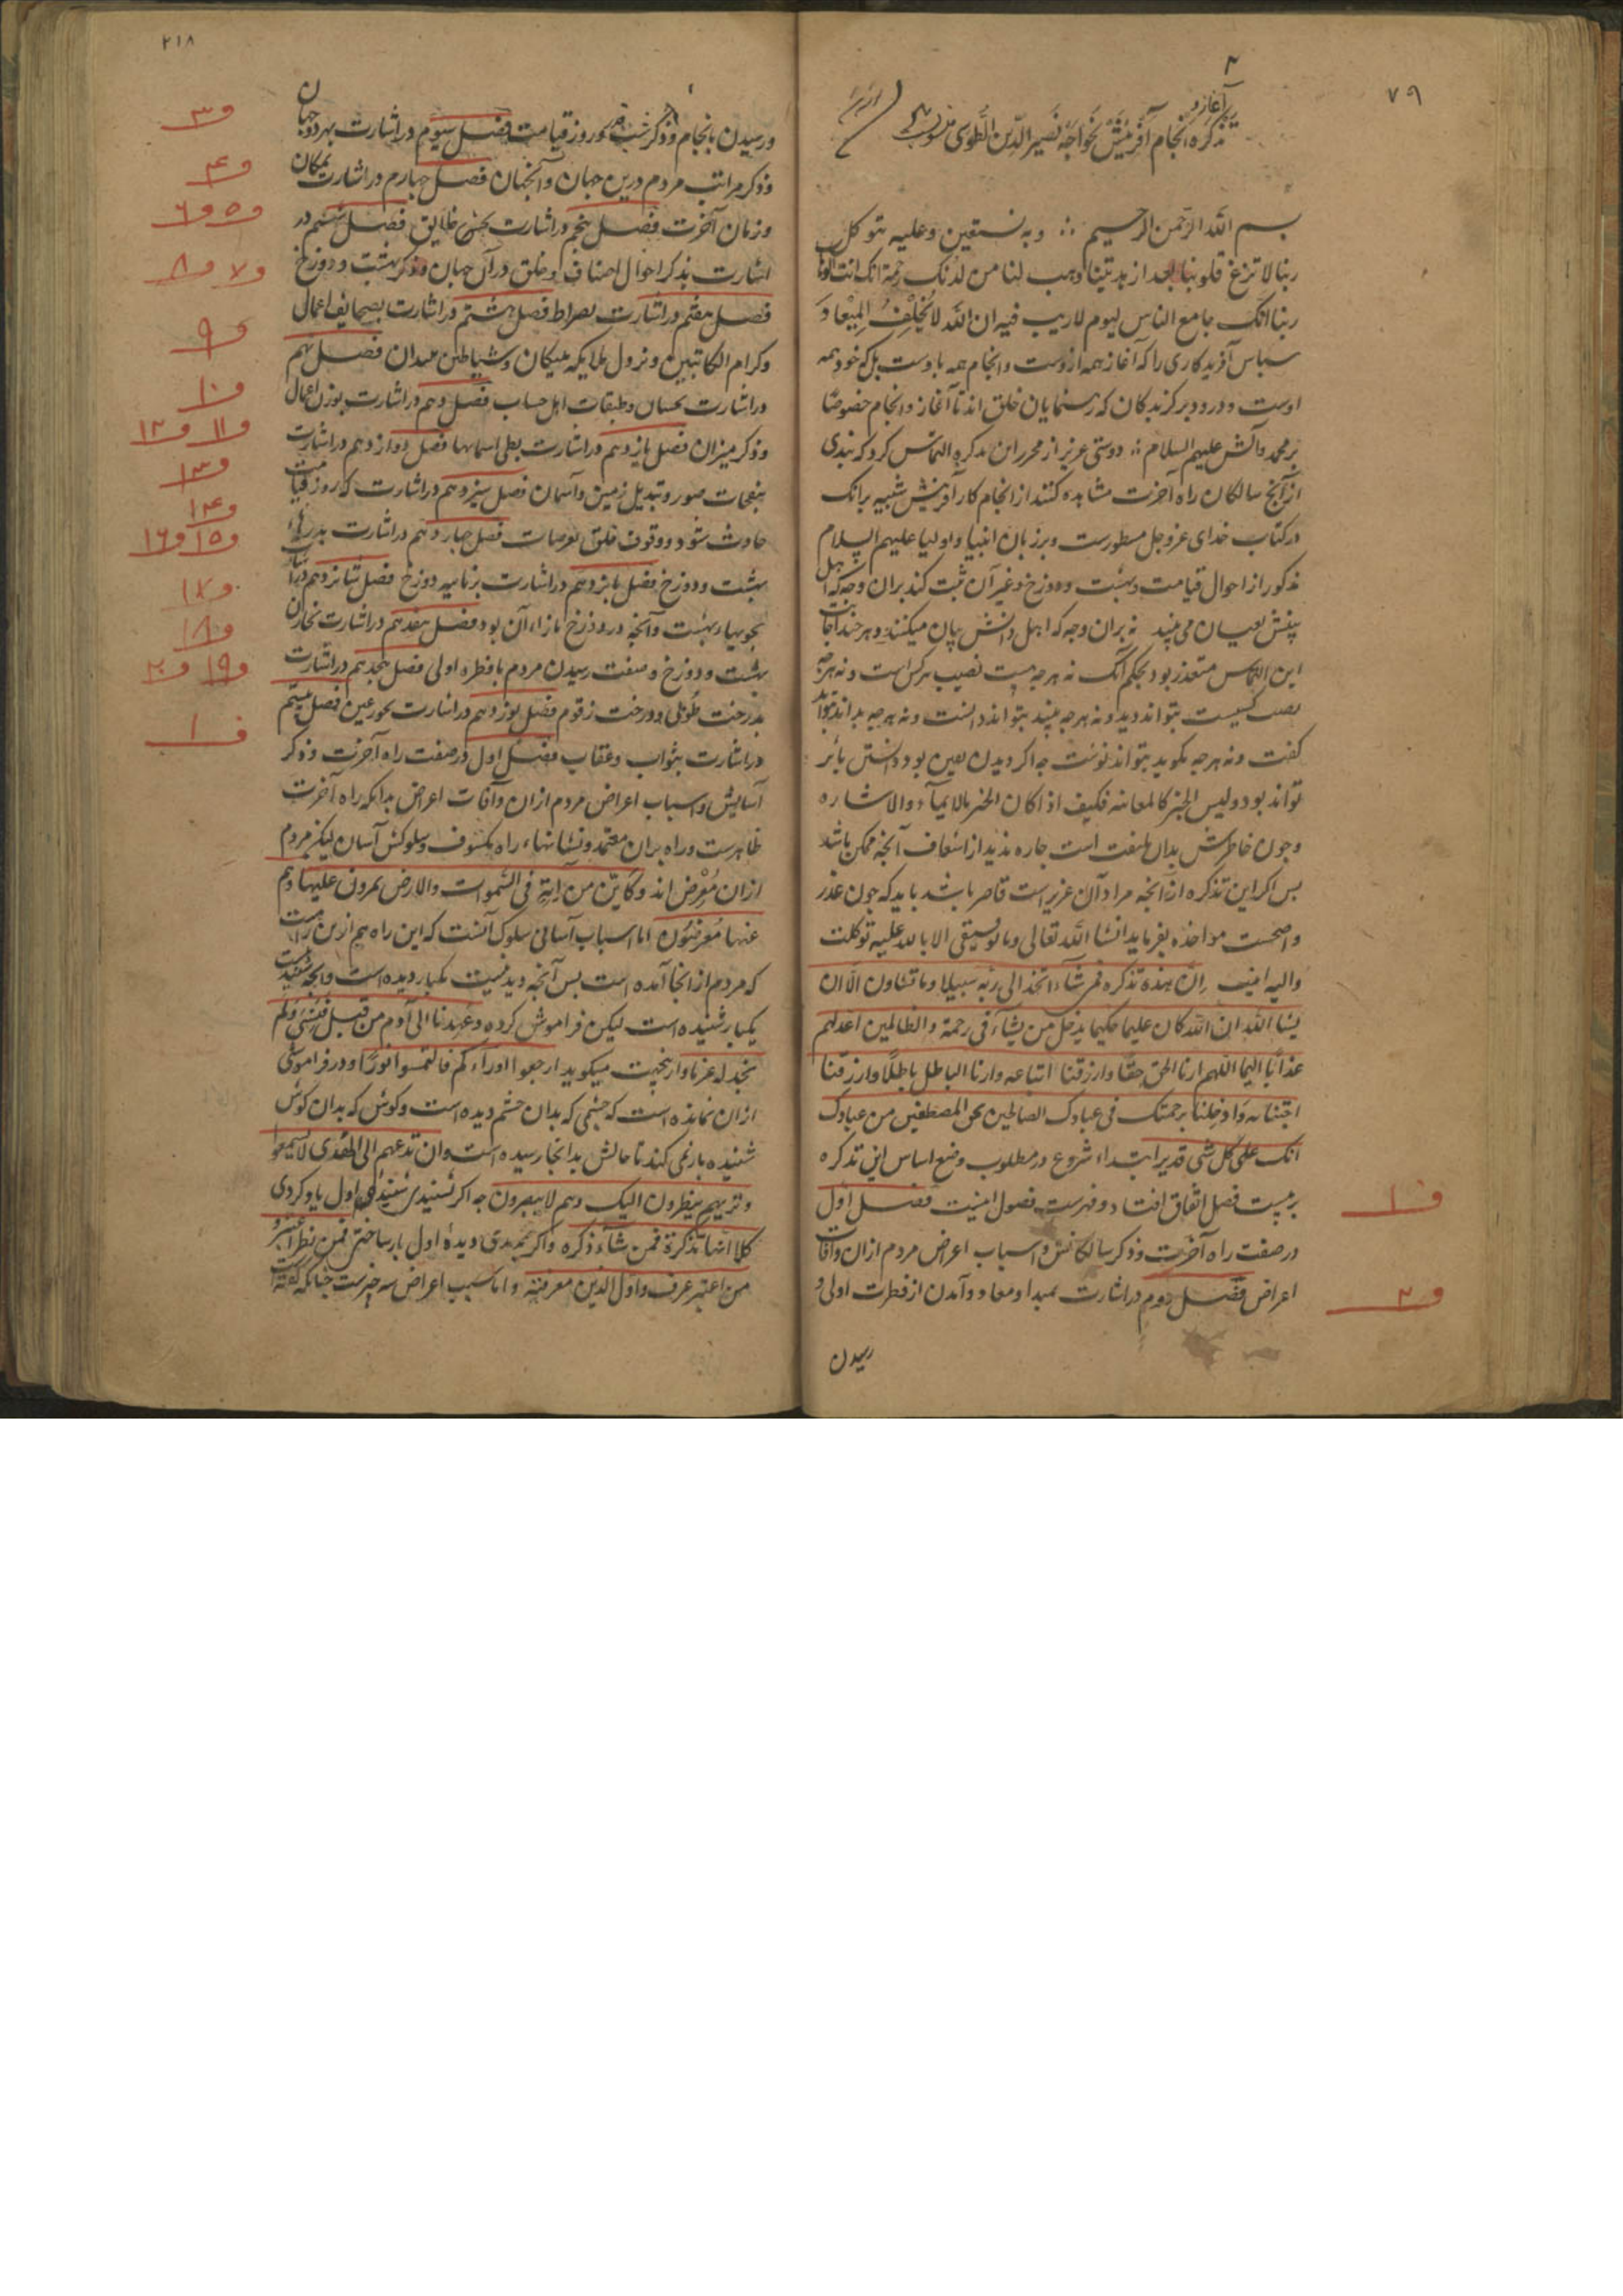 ۷۹
رسالة آغاز و
تذکره انجام آفرینش خواجه نصیر الدین الطوسی
بسم الله الرحمن الرحیم وبه نستعین وعلیه نتوکل
ربنا لا تزغ قلوبنا بعد اذ هدیتنا وهب لنا من لدنک رحمة انک انت الوهاب
ربنا انک جامع الناس لیوم لا ریب فیه ان الله لا یُخْلِفُ المِیْعَادَ
سباس آفریدکاری را که آغاز همه ازوست وانجام همه باوست بلکه خود همه
اوست ودرود بر کزیدکان که رهنمایان خلق اند تا آغاز وانجام خصوصًا
بر محمد وآلش علیهم السلام دوستی عزیز از محرر این تذکره التماس کرد که نبذی
از آنچ سالکان راه آخرت مشاهده کنند از انجام کار آفرینش شبیه بدانک
در کتاب خدای عزوجل مسطورست وبر زبان انبیا واولیا علیهم السلام
مذکور از احوال قیامت وبهشت ودوزخ وغیر آن ثبت کند بران وجه که اهل
بینش بعیان می بینند نه بران وجه که اهل دانش بیان میکنند وهر چند اجابت
این التماس متعذر بود بحکم آنک نه هرچه هست نصیب هرکس است ونه هرچه
نصیب کسیست بتواند دید ونه هرچه بیند بتواند دانست ونه هرچه بداند بتواند
کفت ونه هرچه بکوید بتواند نوشت جه اکر دیدن بعین بود دانستن باثر
تواند بود ولیس الخبر کالمعاینه فکیف اذا کان الخبر بالایماء والاشاره
وجون خاطرش بدان ملتفت است جاره ندید از اسعاف آنجه ممکن باشد
بس اکر این تذکره از آنجه مراد آن عزیز است قاصر باشد باید که جون عذر
واضحست مواخذه نفرماید انشا الله تعالی وما توفیقی الا بالله علیه توکلت
والیه انیب ان هذه تذکرة فمن شاء اتخذ الی ربه سبیلا وما تشاون الا ان
یشا الله ان الله کان علیما حکیما یدخل من یشاء فی رحمته والظالمین اعدلهم
عذابًا الیما اللهم ارنا الحق حقًا وارزقنا اتباعه وارنا الباطل باطلًا وارزقنا
اجتنابه وادخلنا برحمتک فی عبادک الصالحین المصطفین من عبادک
انک علی کل شی قدیر ابتداء شروع در مطلوب وضع اساس این تذکره
بر بیست فصل اتفاق افتاد وفهرست فصول اینست فصل اول
در صفت راه آخرت وذکر سالکانش واسباب اعراض مردم ازان وآفات
اعراض فصل دوم در اشارت بمبدا ومعاد وآمدن از فطرت اولی و
رسیدن
ف ۱
ف ۲
۲۱۸
ورسیدن بانجام وذکر شب قدر وروز قیامت فصل سیوم در اشارت بهر دو جهان
وذکر مراتب مردم درین جهان وآنجهان فصل جهارم در اشارت بمکان
وزمان آخرت فصل پنجم در اشارت بحشر خلایق فصل ششم در
اشارت بذکر احوال اصناف خلق در آن جهان وذکر بهشت ودوزخ
فصل هفتم در اشارت بصراط فصل هشتم در اشارت بصحایف اعمال
وکرام الکاتبین ونزول ملایکه بر نیکان وشیاطین بر بدان فصل نهم
در اشارت بحساب وطبقات اهل حساب فصل دهم در اشارت بوزن اعمال
وذکر میزان فصل یازدهم در اشارت بطی اسمانها فصل دوازدهم در اشارت
بنفحات صور وتبدیل زمین وآسمان فصل سیزدهم در اشارت که روز قیامت
حادث شود ووقوف خلق بعرصات فصل جهاردهم در اشارت بدرهاء
بهشت ودوزخ فصل پانزدهم در اشارت بزبانیه دوزخ فصل شانزدهم در اشارت
بجویهاء بهشت وآنجه در دوزخ بازاء آن بود فصل هفدهم در اشارت بخازن
بهشت ودوزخ وصفت رسیدن مردم بافطره اولی فصل هجدهم در اشارت
بدرخت طُوبی ودرخت زقوم فصل نوزدهم در اشارت بحور عین فصل بیستم
در اشارت بثواب وعقاب فصل اول در صفت راه آخرت وذکر
آسایش واسباب اعراض مردم ازان وآفات اعراض بدانکه راه آخرت
ظاهرست وراه بران معتمد ونشانهاء راه مکشوف وسلوکش آسان لیکن مردم
ازان مُعْرِض اند وکاین من آیة فی السموات والارض یمرون علیها وهم
عنها مُعرضون اما اسباب آسانی سلوک آنست که این راه هم ازین راهست
که مردم از انجا آمده است بس آنجه دید نیست یکبار دیده است وانجه شنیدنیست
یکبار شنیده است لیکن فراموش کرده وعهدنا الی آدم من قبل فَنَسیَ ولم
نجد له عزما وازین جهت میکوید ارجعوا وراءکم فالتمسوا نورًا ودر فراموشی
ازان نمانده است که جشمی که بدان جشم دیده است وکوش که بدان کوش
شنیده باز نمی کند تا حالش بدانجا رسیده است وان تدعهم الی الهدی لا یسمعوا
وتریهم ینظرون الیک وهم لا یبصرون جه اکر شنیدی شنیده اول یاد کردی
کلا انها تذکرة فمن شاء ذکره واکر بدیدی دیدهٔ اول باز شناختی فمن نظر اعتبر و
من اعتبر عرف واول الدین معرفته واما سبب اعراض سه جیزست جنانکه کفته اند
ف ۳
ف ۴
ف ۵ ف ۶
ف ۷ ف ۸
ف ۹
ف ۱۰
ف ۱۱ ف ۱۲
ف ۱۳
ف ۱۴
ف ۱۵ ف ۱۶
ف ۱۷
ف ۱۸
ف ۱۹ ف ۲۰
ف ۱